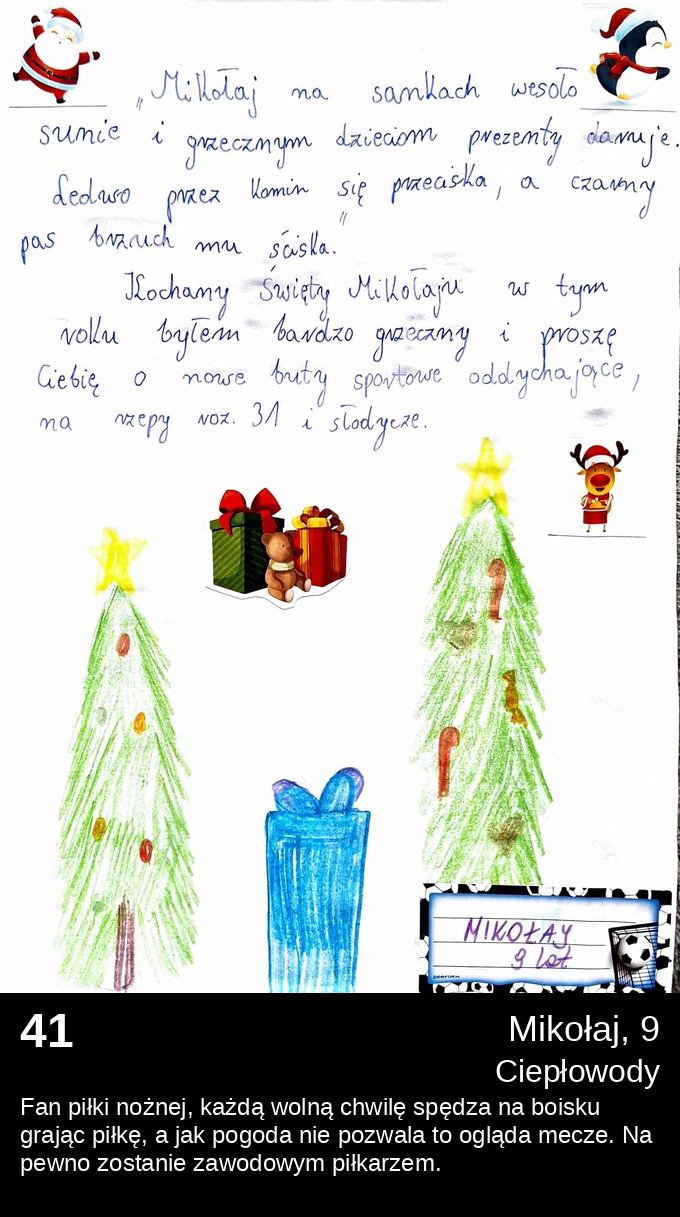 „Mikołaj na sankach wesoło
sunie i grzecznym dzieciom prezenty daruje.
Ledwo przez komin się przeciska, a czarny
pas brzuch mu ściska.”
Kochany Święty Mikołaju w tym
roku byłem bardzo grzeczny i proszę
Ciebię o nowe buty sportowe oddychające,
na rzepy roz. 31 i słodycze.
MIKOŁAY
9 lat
41
Mikołaj, 9
Ciepłowody
Fan piłki nożnej, każdą wolną chwilę spędza na boisku
grając piłkę, a jak pogoda nie pozwala to ogląda mecze. Na
pewno zostanie zawodowym piłkarzem.